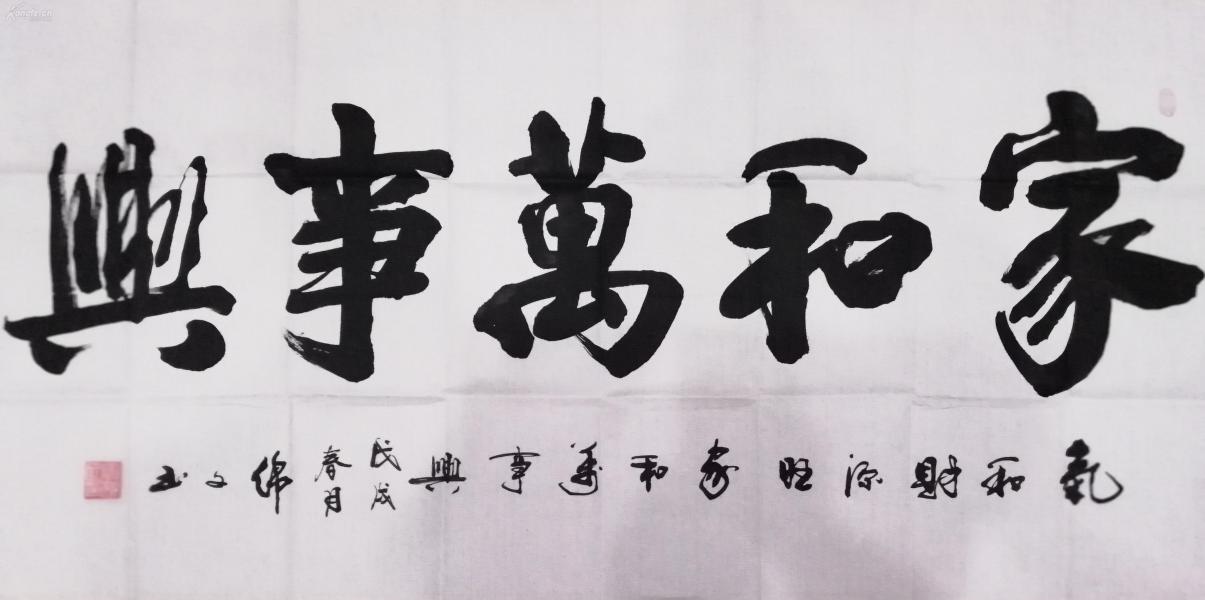 家和萬事興
氣和財源旺家和萬事興
戊戌
春月
文书